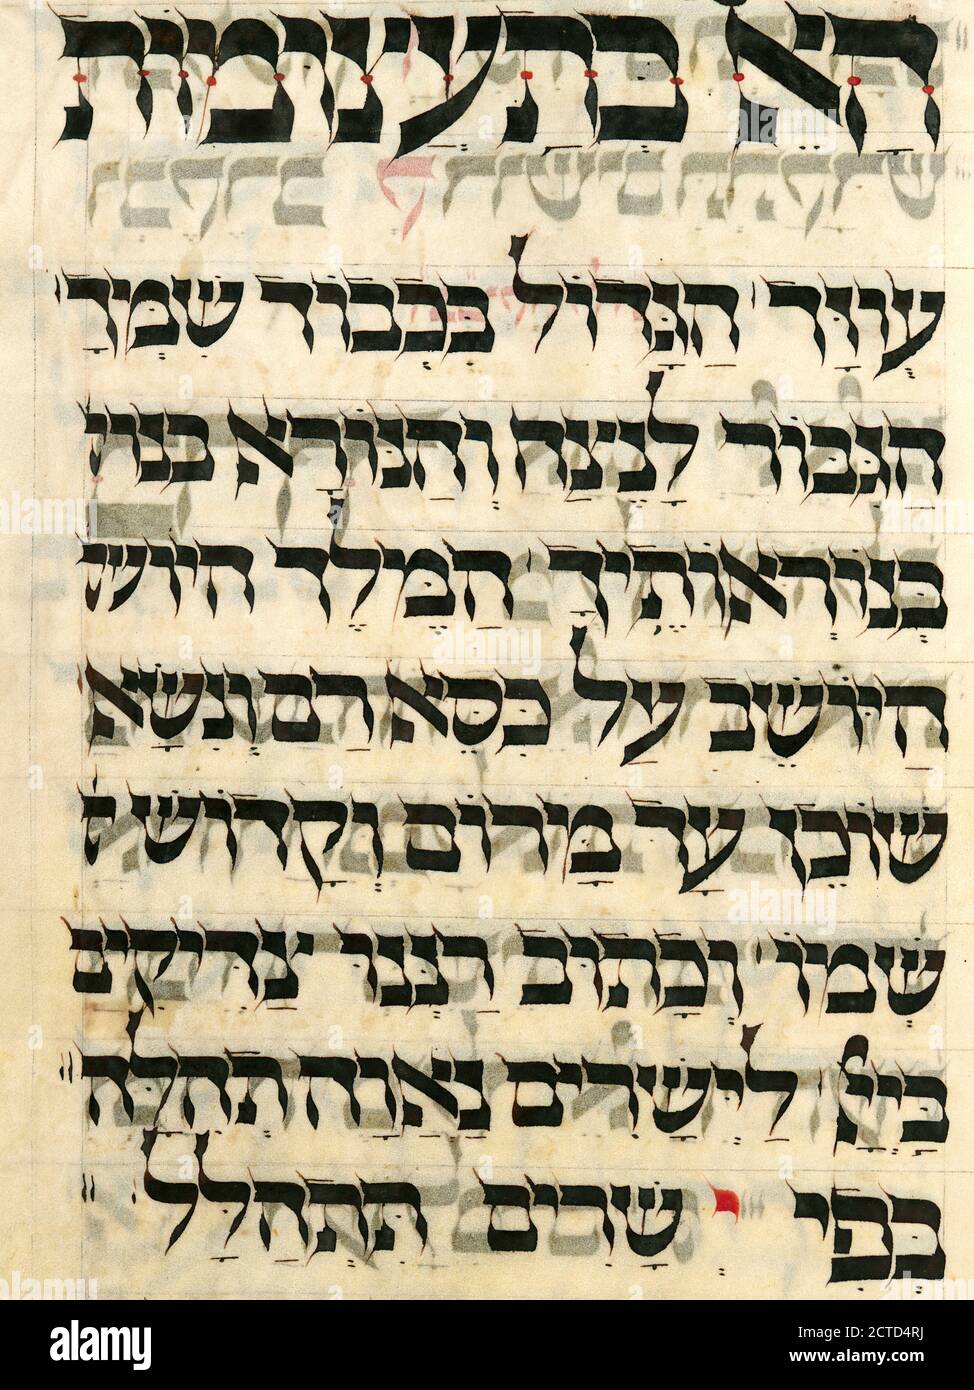 האל בתעצומות
עוזך הגדול בכבוד שמך
הגבור לנצח והנורא בנו
בנוראותיך המלך היוש
היושב על כסא רם ונשא
שוכן עד מרום וקדוש ש
שמו וכתוב רננו צדיקים
ביי לישרים נאוה תהלה
בפי ישרים תתהלל
alamy
Image ID: 2CTD4RJ
www.alamy.com